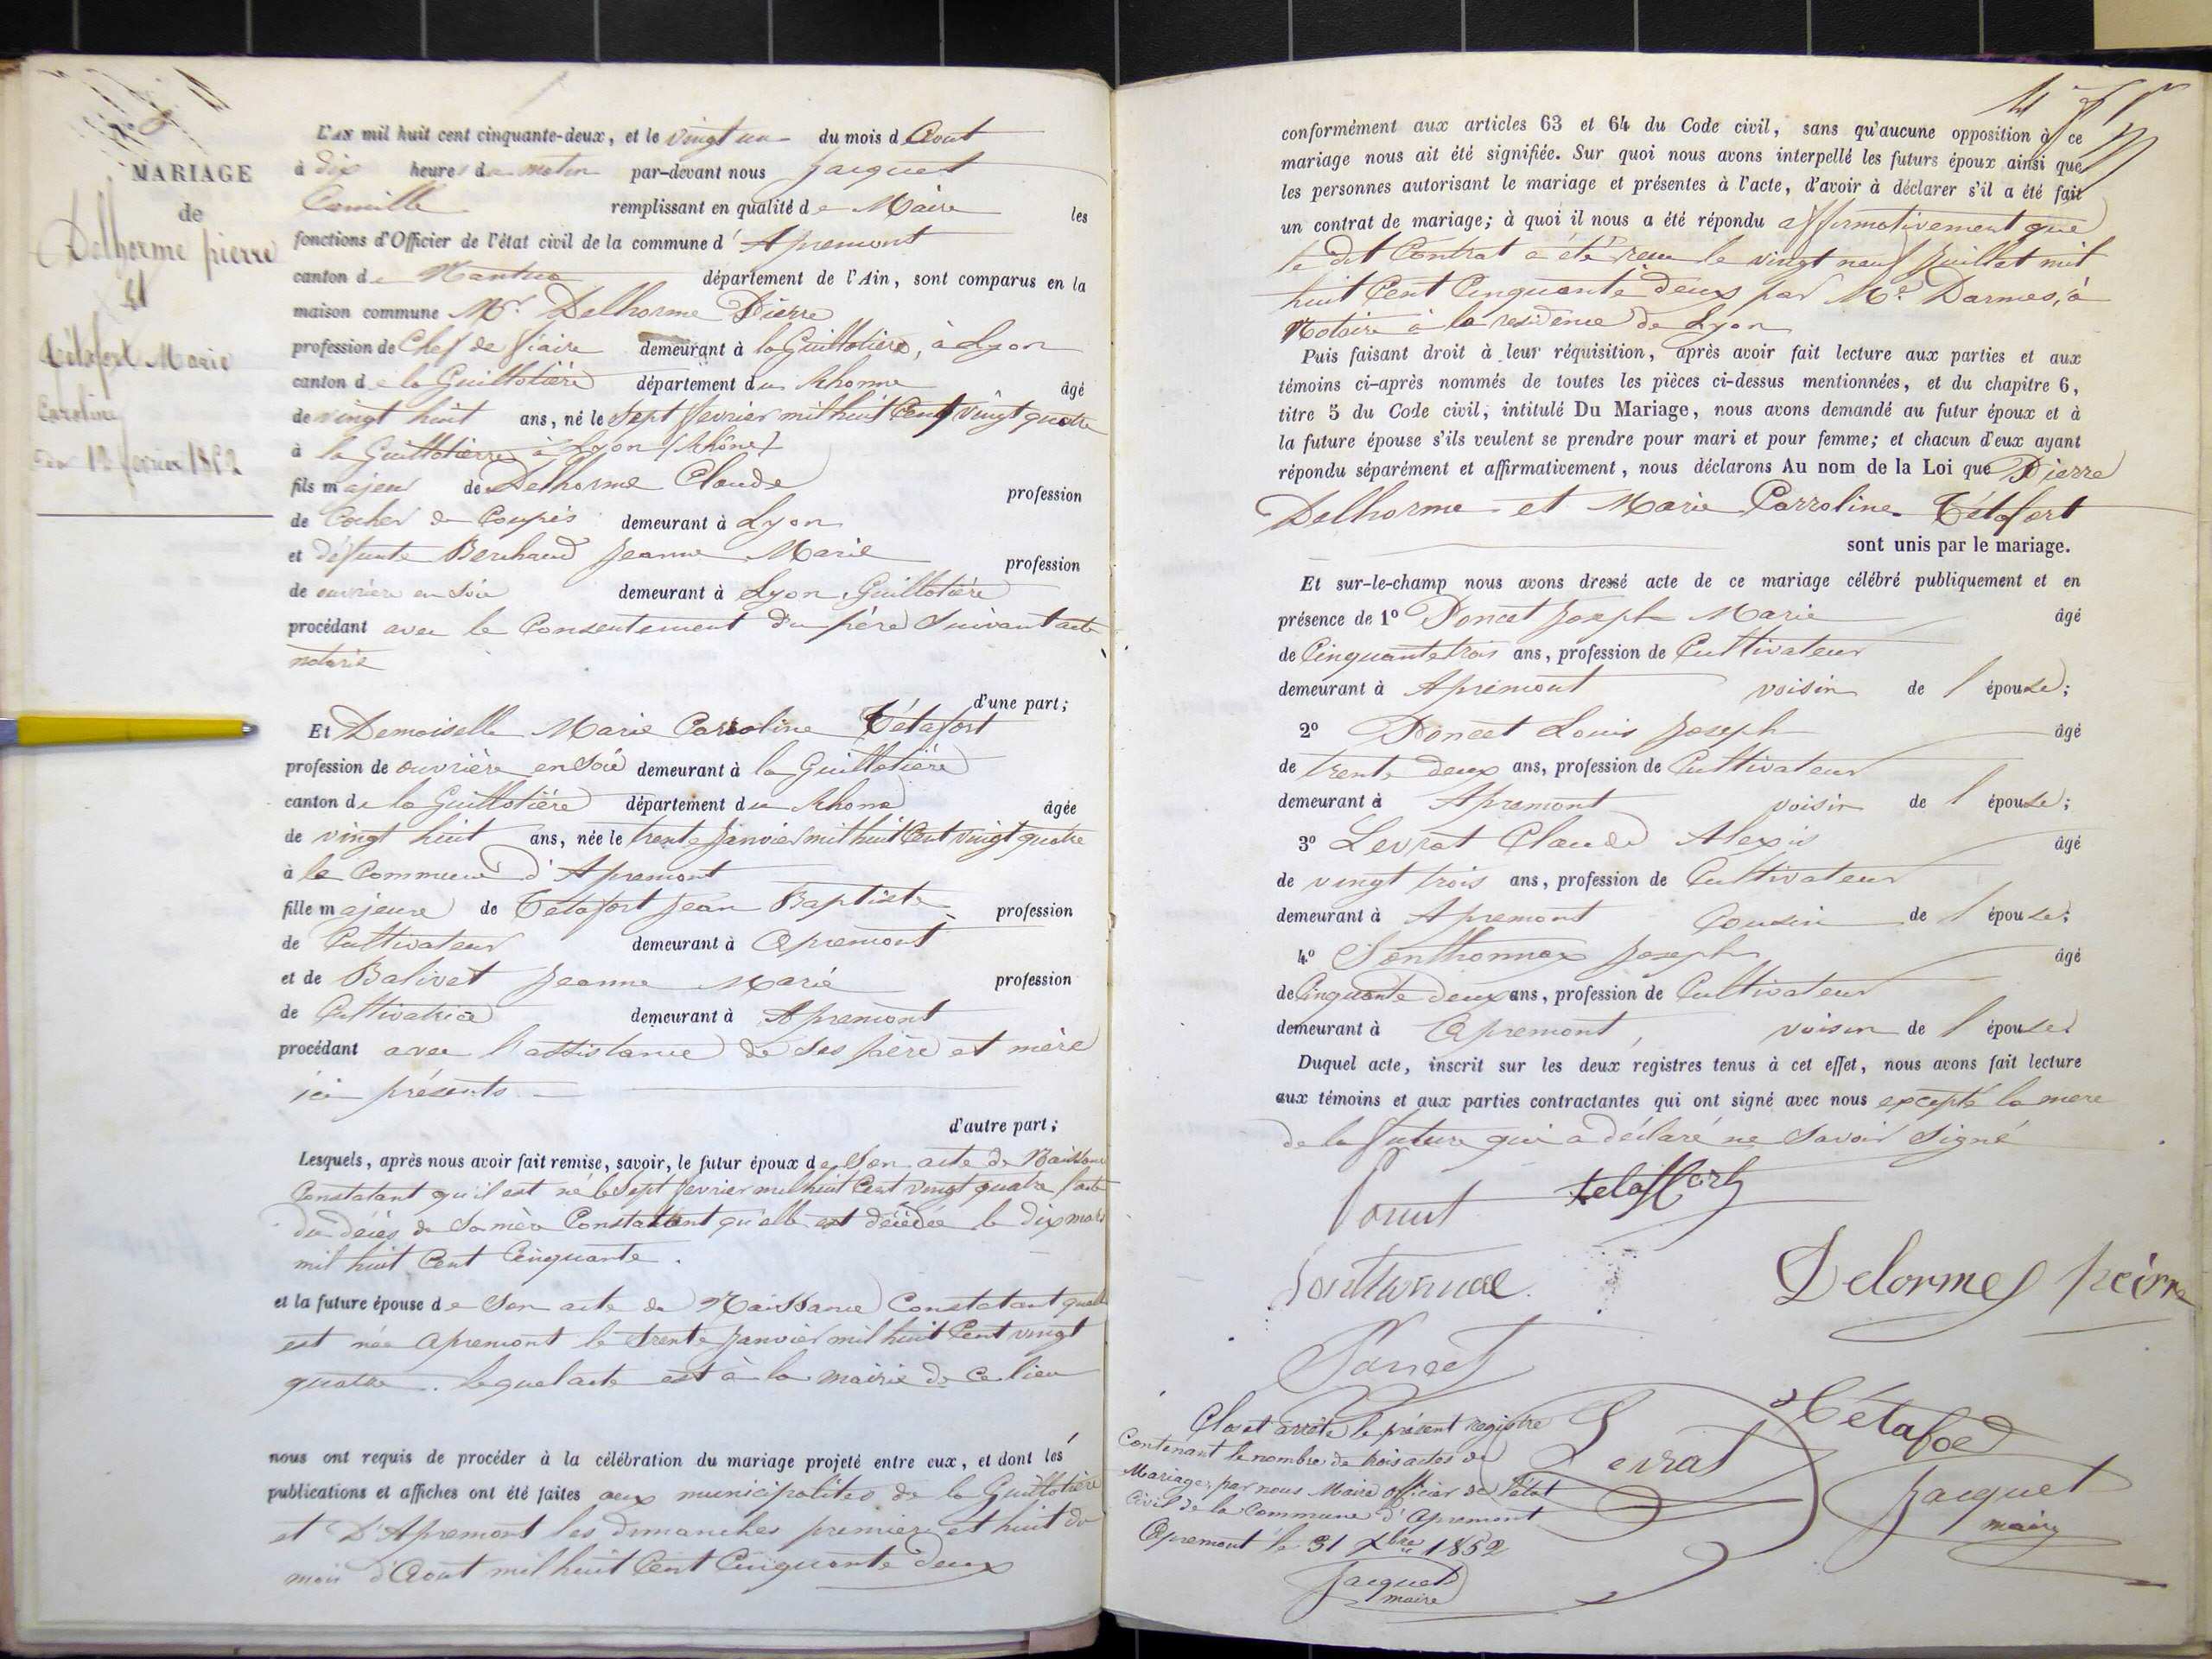 MARIAGE
de
Delhorme pierre
et
Tétafort Marie
Caroline
12 fevrier 1852
L'AN mil huit cent cinquante-deux, et le vingt un du mois d Aout
à dix heures du matin par-devant nous Jacquet
Camille remplissant en qualité de Maire les
fonctions d'Officier de l'état civil de la commune d'Apremont
canton de Nantua département de l'Ain, sont comparus en la
maison commune Mr. Delhorme Pierre
profession de Chef de demeurant à la Guillotière, à Lyon
canton de la Guillotière département du Rhonne âgé
de vingt huit ans, né le Sept fevrier mil huit Cent vingt quatre
à la Guillotierre à Lyon (Rhône)
fils majeur de Delhorme Claude profession
de Cocher de Coupés demeurant à Lyon
et défunte Berchaud Jeanne Marie profession
de ouvrière en soie demeurant à Lyon, Guillotière
procédant avec le Consentement du père Suivant acte
notarié
d'une part;
Et Demoiselle Marie Carroline Tétafort
profession de ouvrière en Soie demeurant à la Guillotière
canton de la Guillotière département du Rhone âgée
de vingt huit ans, née le trente Janvier mil huit Cent vingt quatre
à la Commune d'Apremont
fille majeure de Tétafort Jean Baptiste profession
de Cultivateur demeurant à Apremont
et de Balivet Jeanne Marie profession
de Cultivatrice demeurant à Apremont
procédant avec l'assistance de Ses père et mère
ici présents
d'autre part;
Lesquels, après nous avoir fait remise, savoir, le futur époux de Son acte de Naissance
Constatant qu'il est né le Sept fevrier mil huit Cent vingt quatre l'acte
du décès de Sa mère Constatant qu'elle est décédée le dix mars
mil huit Cent Cinquante.
et la future épouse de Son acte de Naissance Constatant quelle
est née apremont le trente Janvier mil huit Cent vingt
quatre. lequel acte est à la mairie de ce lieu
nous ont requis de procéder à la célébration du mariage projeté entre eux, et dont les
publications et affiches ont été faites aux municipalites de la Guillotière
et D'Apremont les dimanches premier et huit du
mois d'Aout mil huit Cent Cinquante deux
conformément aux articles 63 et 64 du Code civil, sans qu'aucune opposition à ce
mariage nous ait été signifiée. Sur quoi nous avons interpellé les futurs époux ainsi que
les personnes autorisant le mariage et présentes à l'acte, d'avoir à déclarer s'il a été fait
un contrat de mariage; à quoi il nous a été répondu affirmativement que
le dit Contrat a été recu le vingt neuf Juillet mil
huit Cent Cinquante deux par Me. Darmes, à
Notaire à la residence de Lyon
Puis faisant droit à leur réquisition, après avoir fait lecture aux parties et aux
témoins ci-après nommés de toutes les pièces ci-dessus mentionnées, et du chapitre 6,
titre 5 du Code civil, intitulé Du Mariage, nous avons demandé au futur époux et à
la future épouse s'ils veulent se prendre pour mari et pour femme; et chacun d'eux ayant
répondu séparément et affirmativement, nous déclarons Au nom de la Loi que Pierre
Delhorme et Marie Carroline Tétafort
sont unis par le mariage.
Et sur-le-champ nous avons dressé acte de ce mariage célébré publiquement et en
présence de 1º Poncet Joseph Marie âgé
de Cinquante trois ans, profession de Cultivateur
demeurant à Apremont voisin de l'épouse;
2º Poncet Louis Joseph âgé
de trente deux ans, profession de Cultivateur
demeurant à Apremont voisin de l'épouse;
3º Levrat Claude Alexis âgé
de vingt trois ans, profession de Cultivateur
demeurant à Apremont Cousin de l'épouse;
4º Sonthonnax Joseph âgé
de Cinquante deux ans, profession de Cultivateur
demeurant à Apremont, voisin de l'épouse
Duquel acte, inscrit sur les deux registres tenus à cet effet, nous avons fait lecture
aux témoins et aux parties contractantes qui ont signé avec nous excepté la mere
de la future qui a déclaré ne Savoir Signé
Sonthonnax
Delorme pierre
Poncet
Levrat
Tétafort
Jacquet
maire
Clos et arrêté le présent registre
Contenant le nombre de trois actes de
Mariage, par nous Maire officier de l'état
Civil de la Commune d'Apremont
Apremont le 31 Xbre 1852
Jacquet
maire